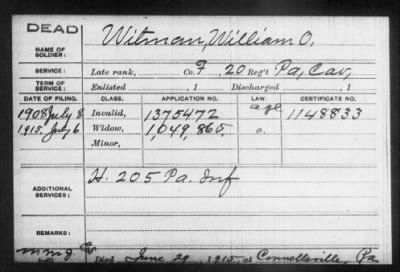 DEAD
NAME OF SOLDIER: Witman, William O.
SERVICE: Late rank, Co. F, 20 Reg't Pa, Cav,
TERM OF SERVICE: Enlisted , 1 Discharged , 1
DATE OF FILING. CLASS. APPLICATION NO. LAW. CERTIFICATE NO.
1908 July 8 Invalid, 1375472 age 1148833
1915 July 6 Widow, 1,049,865. a.
Minor,
ADDITIONAL SERVICES: H. 205 Pa. Inf
REMARKS:
Died June 29, 1915 at Connellsville, Pa